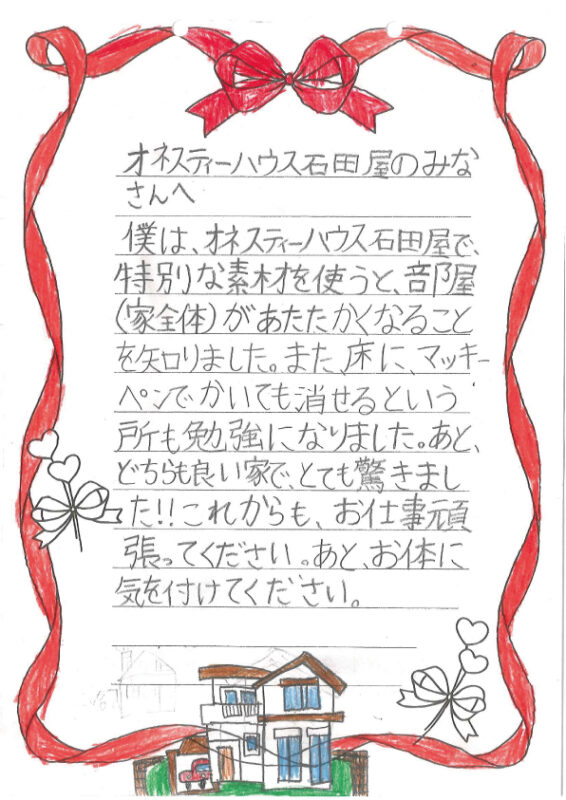 オネスティーハウス石田屋のみな
さんへ
僕は、オネスティーハウス石田屋で、
特別な素材を使うと、部屋
(家全体)があたたかくなること
を知りました。また、床に、マッキー
ペンでかいても消せるという
所も勉強になりました。あと、
どちらも良い家で、とても驚きまし
た!!これからも、お仕事頑
張ってください。あと、お体に
気を付けてください。